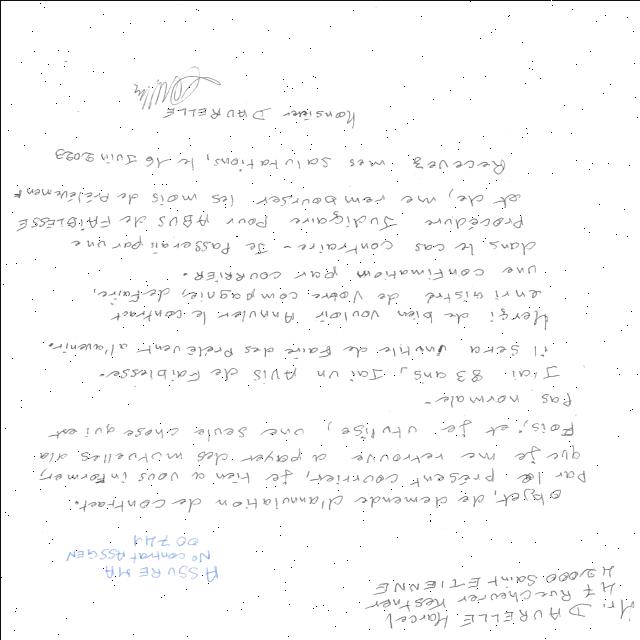 Mr. DAURELLE Marcel
47 Rue Cheurer Kestner
42000 Saint ETIENNE
ASSUREMA
N° contrat ASSGEN
00744
objet, de demende d'annulation de contract.
Par le présent courrier, je tien a vous informer,
que je me retrouve a payer des mutuelles ala
Fois, et je utulise, une seule chose qui est
pas normale-
J'ai 83 ans, J'ai un AVIS de Faiblesse.
il sera inutile de Faire des Prélévent a l'avenir.
Mergi de bien vouloir Annuler le contract
enrigistré de votre compagnie, de faire,
une confimation par COURRIER.
dans le cas contraire - Je Passerait par une
Procédure Judigaire pour ABUS de FAIBLESSE
et de, me rembourser les mois de Prélévement
Recevez mes salutations, le 16 Juin 2023
Monsieur DAURELLE